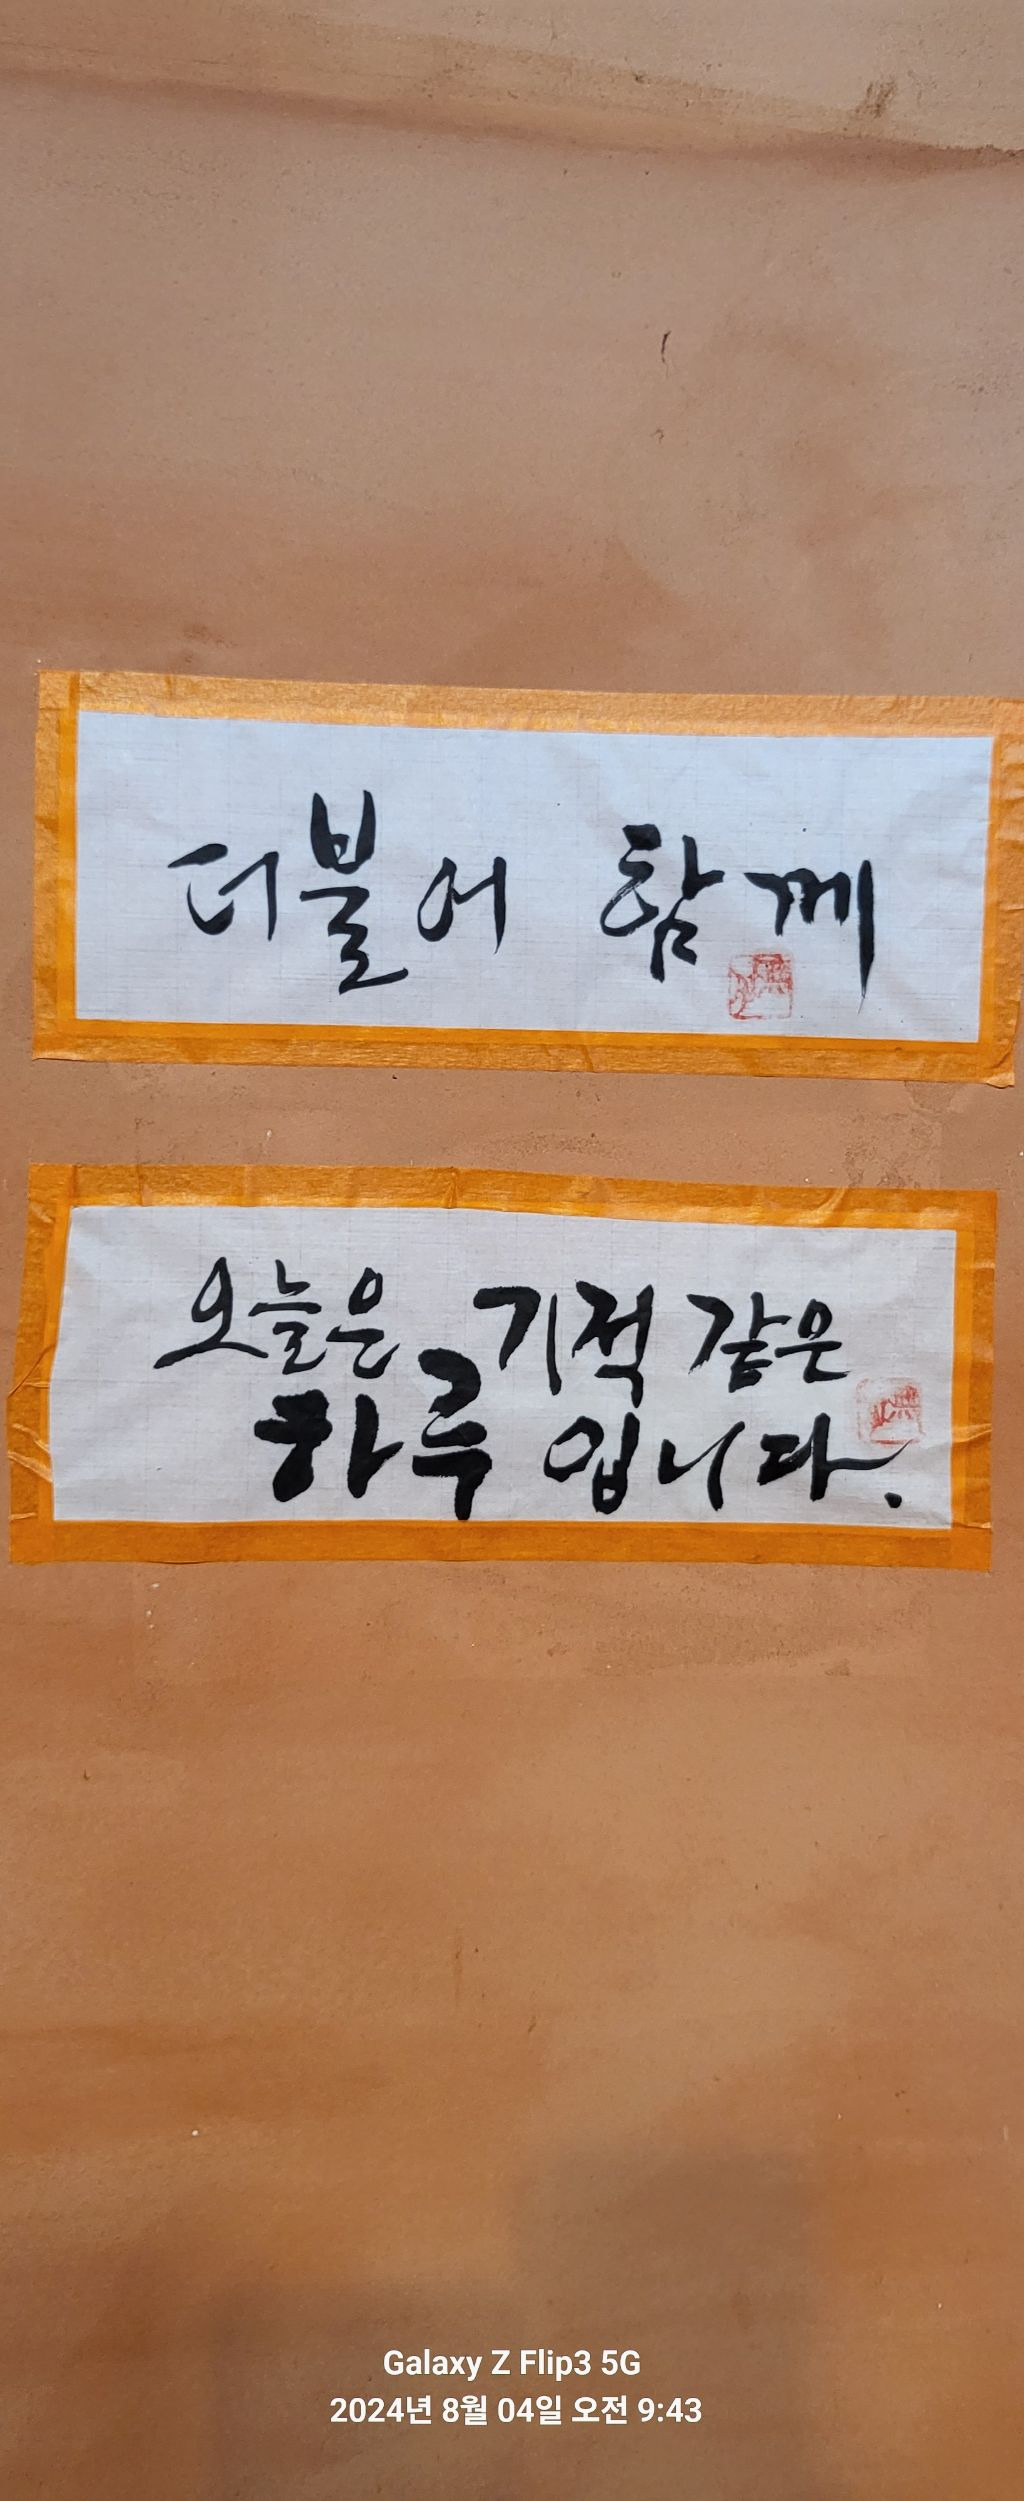 더불어 함께
오늘은 기적 같은
하루 입니다.
Galaxy Z Flip3 5G
2024년 8월 04일 오전 9:43